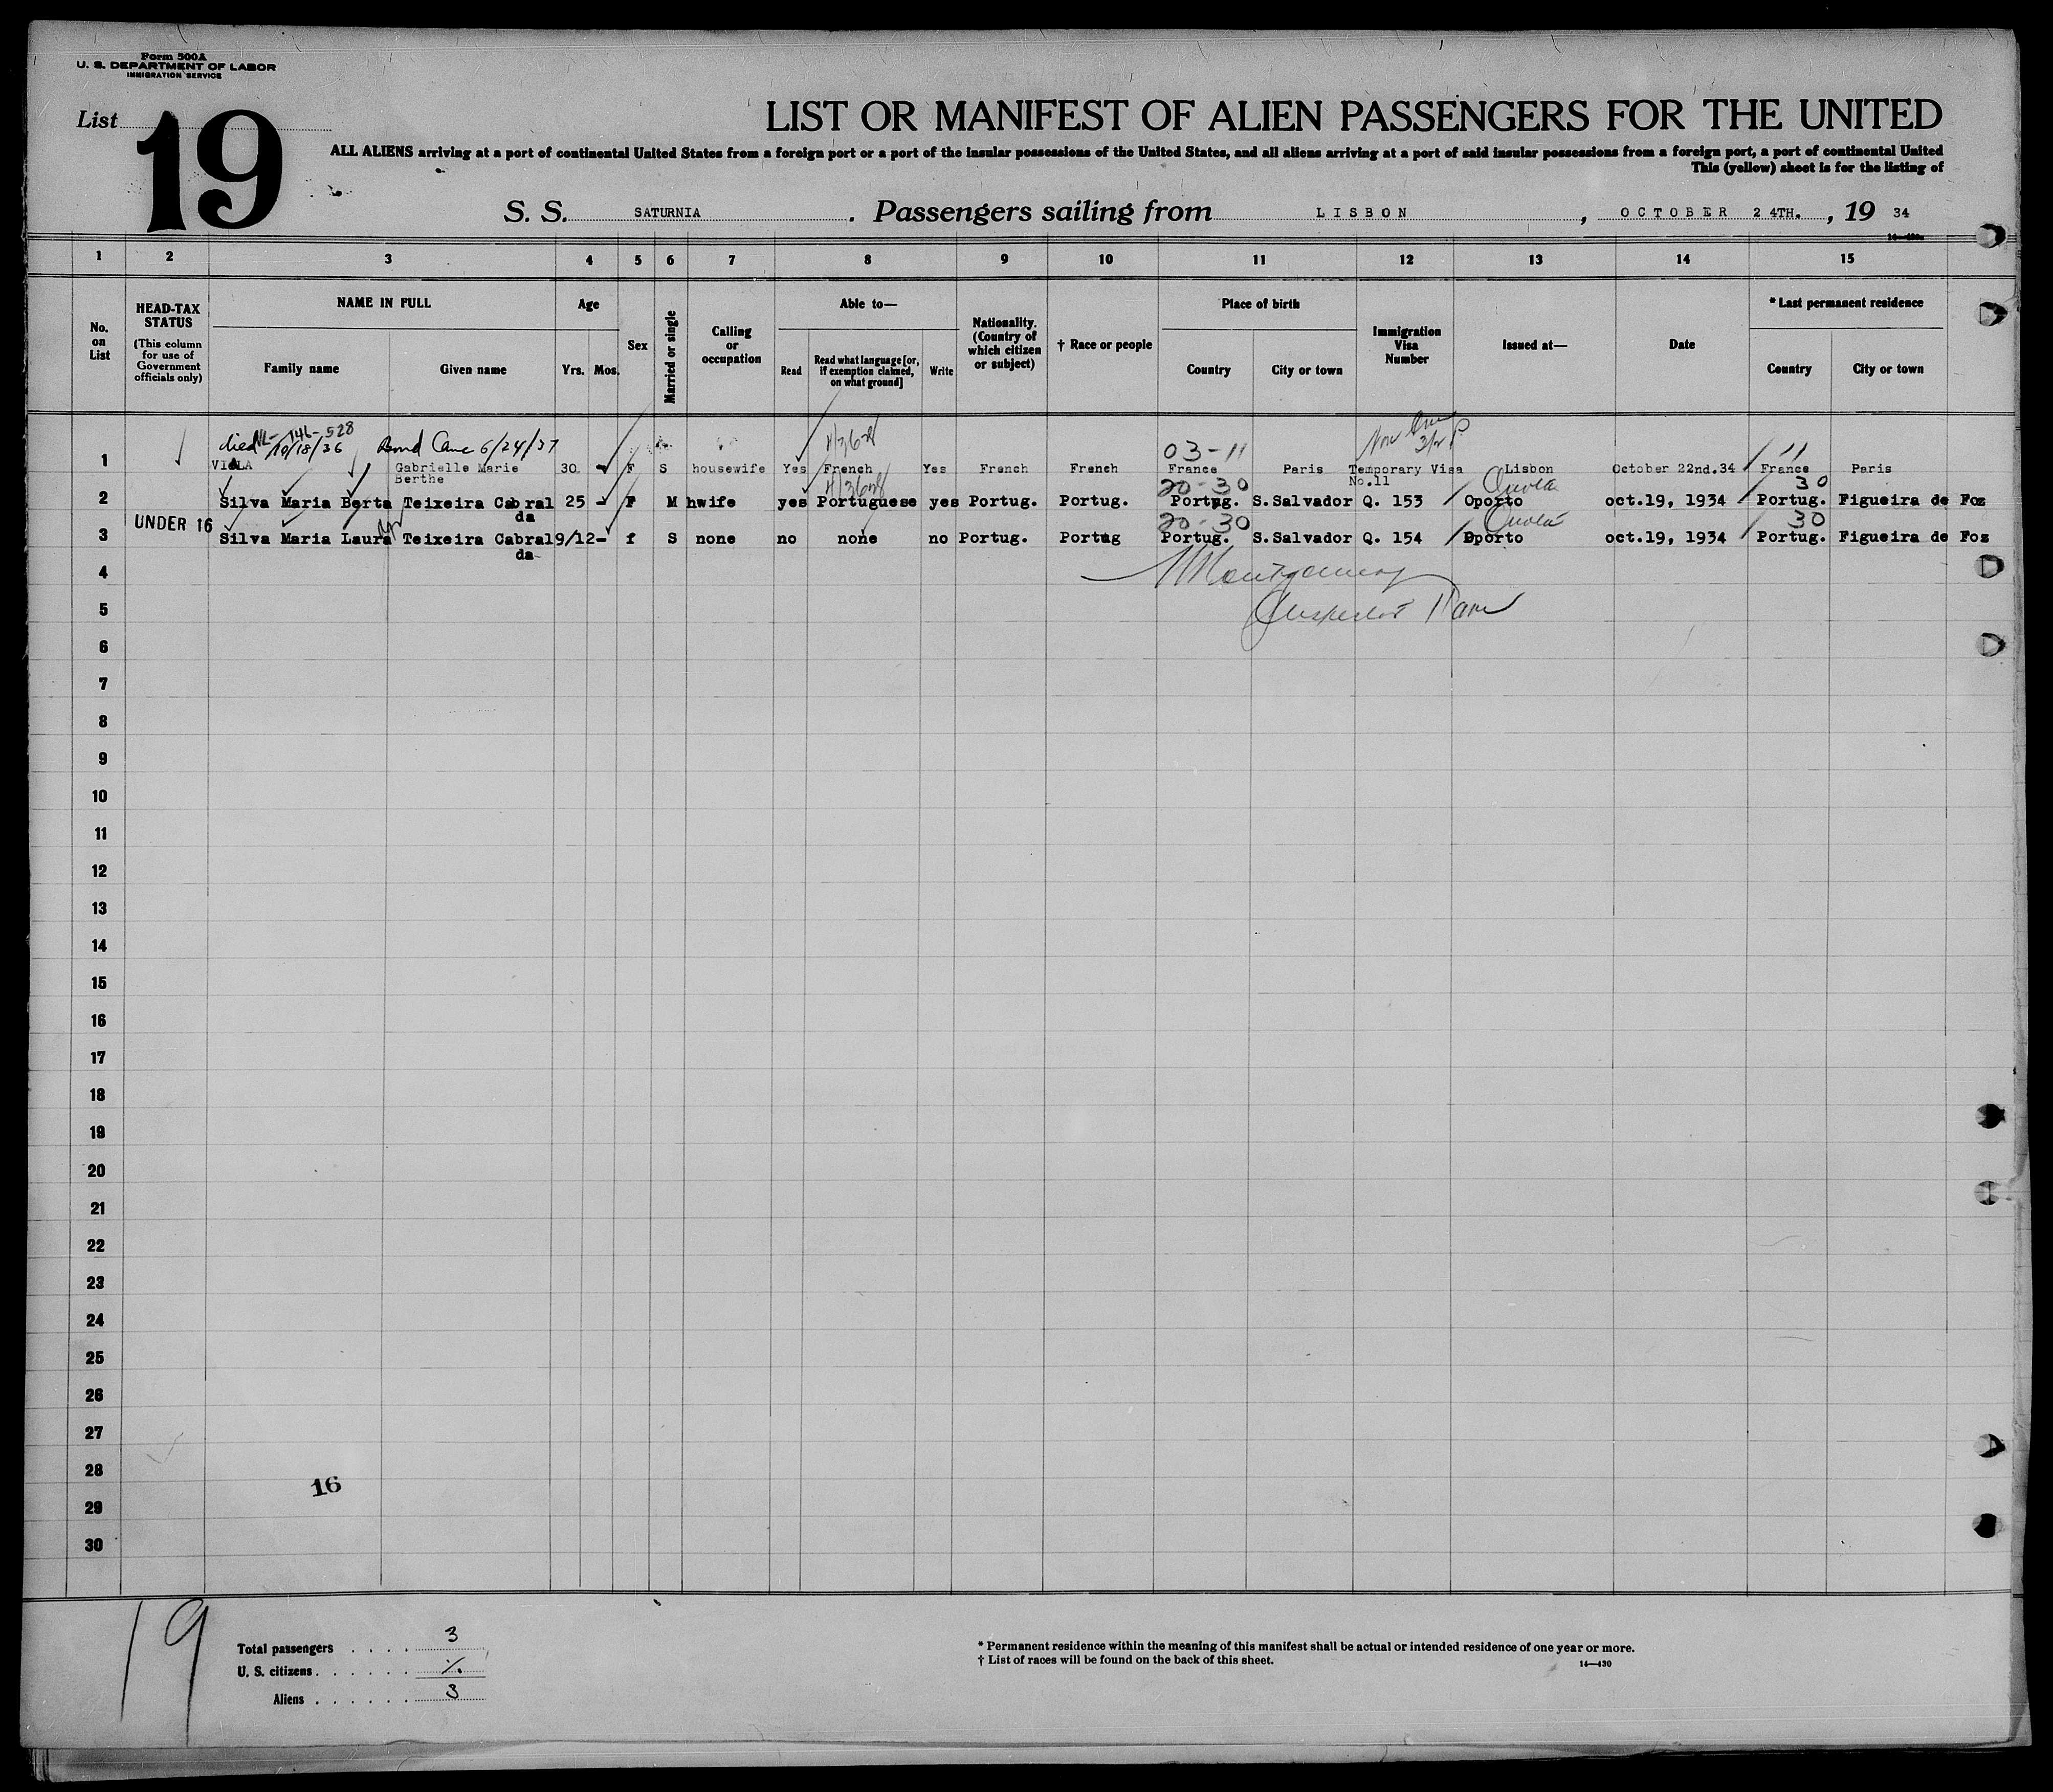 Form 500A
U. S. DEPARTMENT OF LABOR
IMMIGRATION SERVICE
List 19
LIST OR MANIFEST OF ALIEN PASSENGERS FOR THE UNITED
ALL ALIENS arriving at a port of continental United States from a foreign port or a port of the insular possessions of the United States, and all aliens arriving at a port of said insular possessions from a foreign port, a port of continental United
This (yellow) sheet is for the listing of
S. S. SATURNIA. Passengers sailing from LISBON, OCTOBER 24TH., 19 34
1 2 3 4 5 6 7 8 9 10 11 12 13 14 15
No. on List
HEAD-TAX STATUS (This column for use of Government officials only)
NAME IN FULL
Family name Given name
Age
Yrs. Mos.
Sex
Married or single
Calling or occupation
Able to—
Read Read what language [or, if exemption claimed, on what ground] Write
Nationality. (Country of which citizen or subject)
† Race or people
Place of birth
Country City or town
Immigration Visa Number
Issued at—
Date
* Last permanent residence
Country City or town
died 10/18/36 146-528 6/24/37
03-11 11
1 VIOLA Gabrielle Marie Berthe 30 - F S housewife Yes French Yes French French France Paris Temporary Visa No.11 Lisbon October 22nd.34 France Paris
20-30 30
2 Silva Maria Berta Teixeira Cabral da 25 - F M hwife yes Portuguese yes Portug. Portug. Portug. S.Salvador Q. 153 Oporto oct.19, 1934 Portug. Figueira de Foz
UNDER 16 20-30 30
3 Silva Maria Laura Teixeira Cabral da 9/12- f S none no none no Portug. Portug Portug. S.Salvador Q. 154 Oporto oct.19, 1934 Portug. Figueira de Foz
4 Montgomery
5 Inspector
6
7
8
9
10
11
12
13
14
15
16
17
18
19
20
21
22
23
24
25
26
27
28
16
29
30
19
Total passengers . . . . 3
U. S. citizens . . . . . .
Aliens . . . . . . 3
* Permanent residence within the meaning of this manifest shall be actual or intended residence of one year or more.
† List of races will be found on the back of this sheet.
14—430